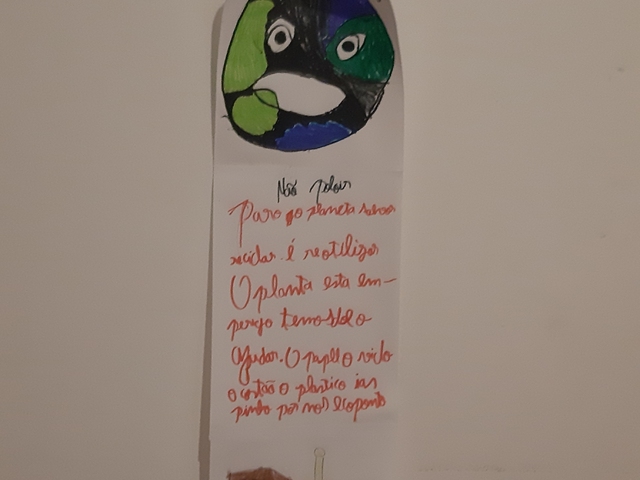 Não poluir
Para o planeta salvar
reciclar é reotilizar
O planta esta em-
perigo temos de o
Ajudar. O papel o vidro
o cartão o plastico ias
pinho por nos ecoponto